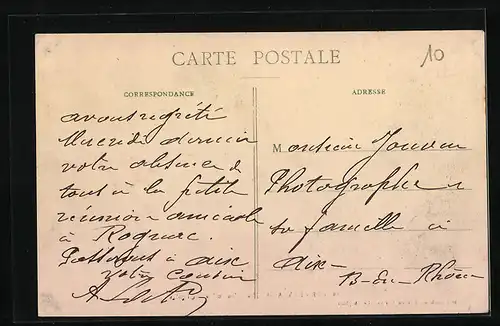 CARTE POSTALE
10
CORRESPONDANCE
avons regretté
Mercredi dernier
votre absence de
tout à la petite
réunion amicale
à Rognac.
à aix
votre cousin
ADRESSE
Monsieur Jouven
Photographe
sa famille à
Aix-
B-du-Rhône